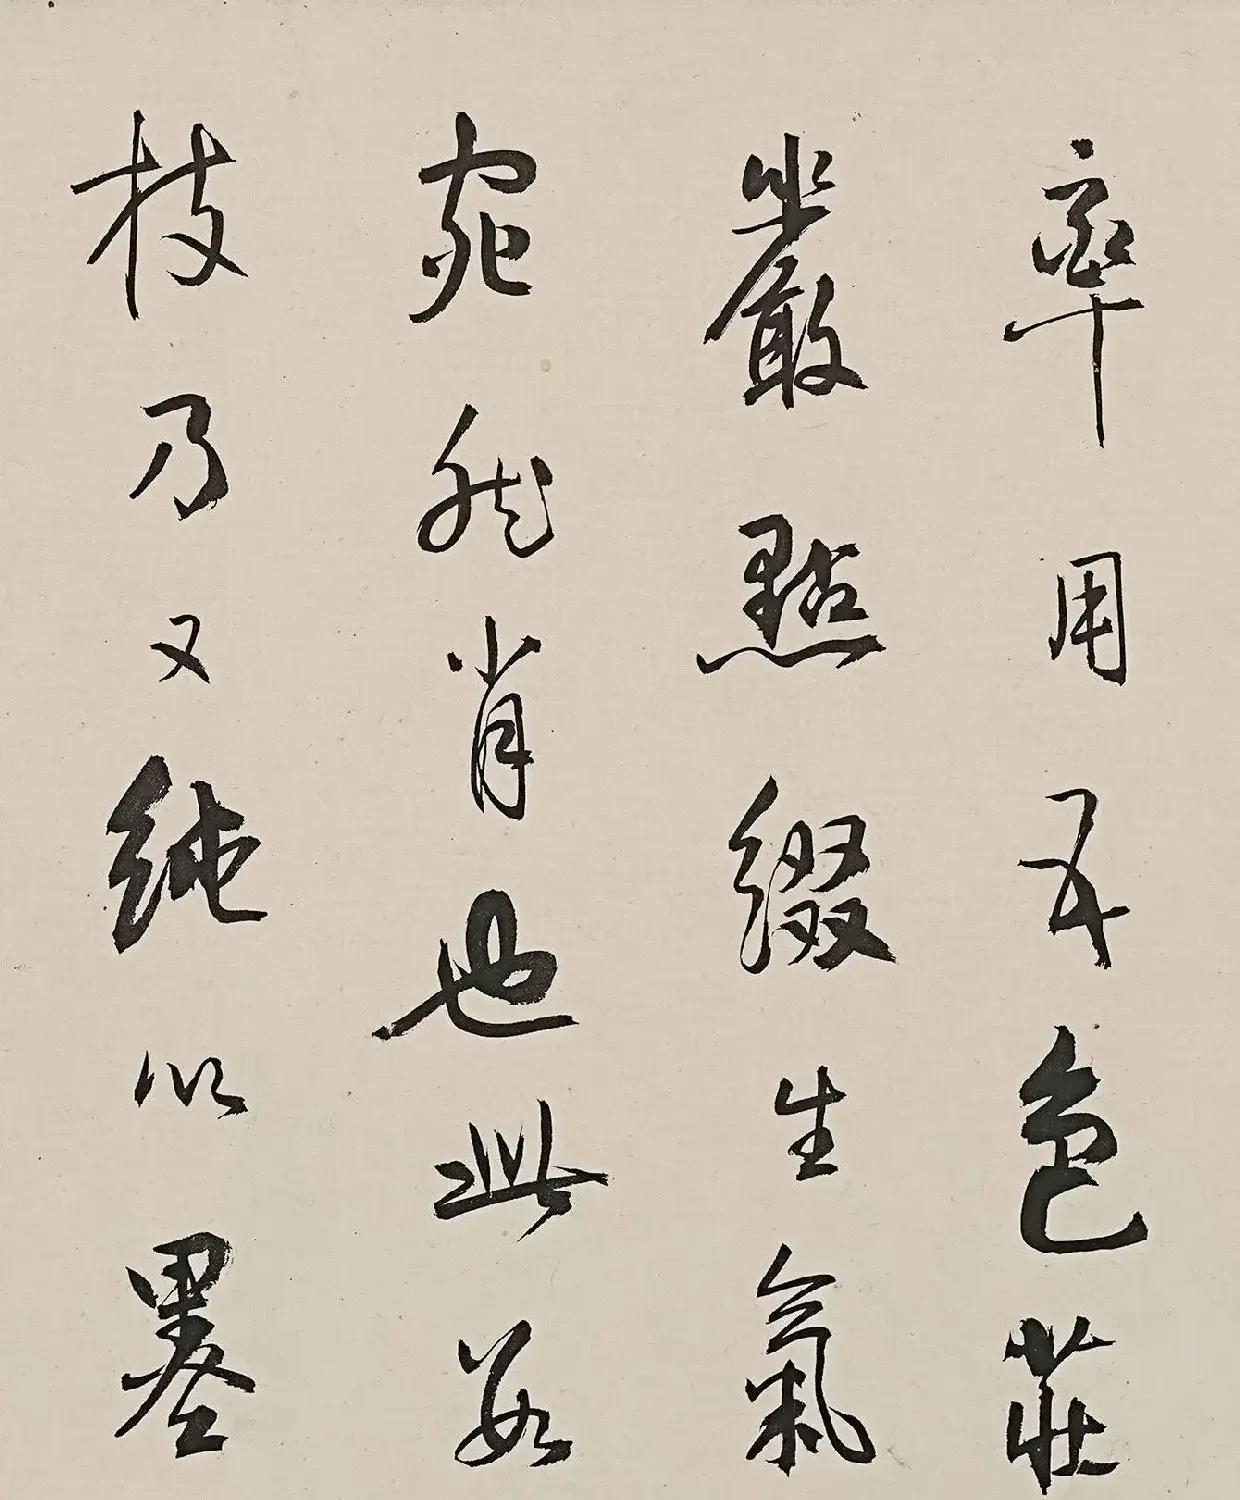 率用五色莊
嚴點綴生氣
宛然肖也此數
枝乃又純以墨